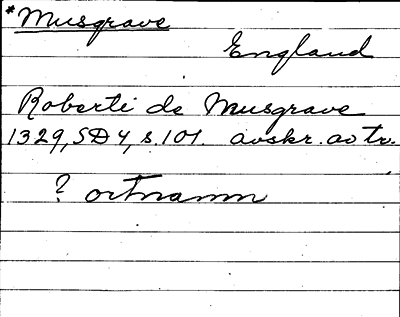 *Musgrave
England
Roberti de Musgrave
1329, SD 4, s. 101. avskr. av tr.
? ortnamn